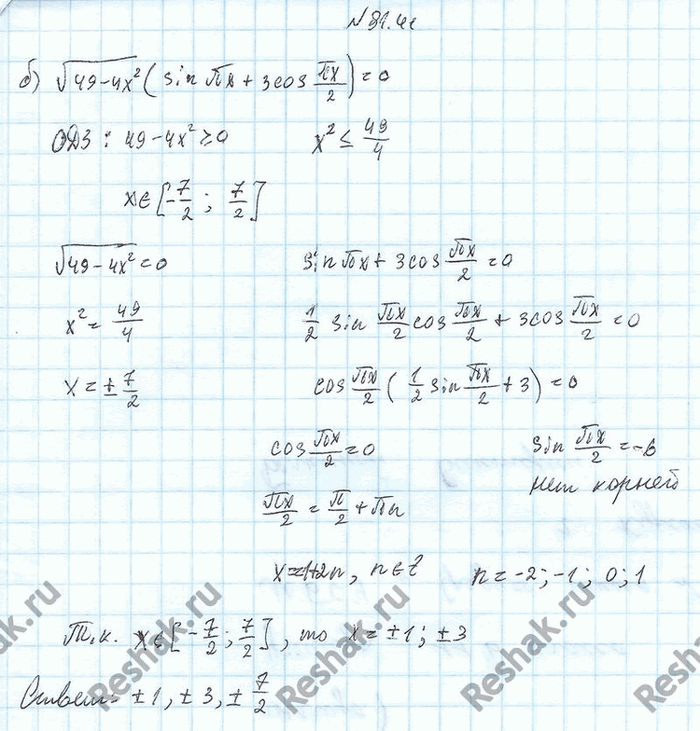 №31.41
б) √(49-4x²) (sin πx + 3cos πx/2) = 0
ОДЗ: 49-4x² ≥ 0    x² ≤ 49/4
x∈[-7/2; 7/2]
√(49-4x²) = 0    sin πx + 3cos πx/2 = 0
x² = 49/4    1/2 sin πx/2 cos πx/2 + 3cos πx/2 = 0
x = ± 7/2    cos πx/2 (1/2 sin πx/2 + 3) = 0
cos πx/2 = 0    sin πx/2 = -6
πx/2 = π/2 + πn    нет корней
x=1+2n, n∈Z    n = -2; -1; 0; 1
Т.к. x∈[-7/2; 7/2], то x = ±1; ±3
Ответ: ±1, ±3, ± 7/2
Reshak.ru
Reshak.ru
Reshak.ru
Reshak.ru